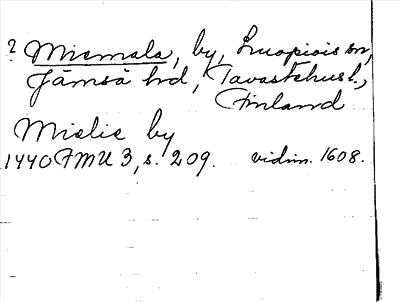 ? Miemala, by, Luopiois sn,
Jämsä hd, Tavastehus l.,
Finland
Mielie by
1440 FMU 3, s. 209. vidim. 1608.